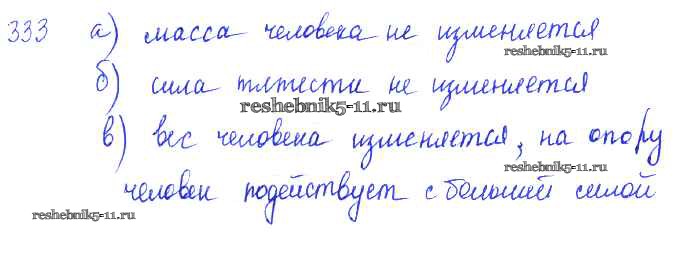 333 а) масса человека не изменяется
reshebnik5-11.ru
б) сила тяжести не изменяется
reshebnik5-11.ru
в) вес человека изменяется, на опору
reshebnik5-11.ru
человек подействует с большей силой
reshebnik5-11.ru